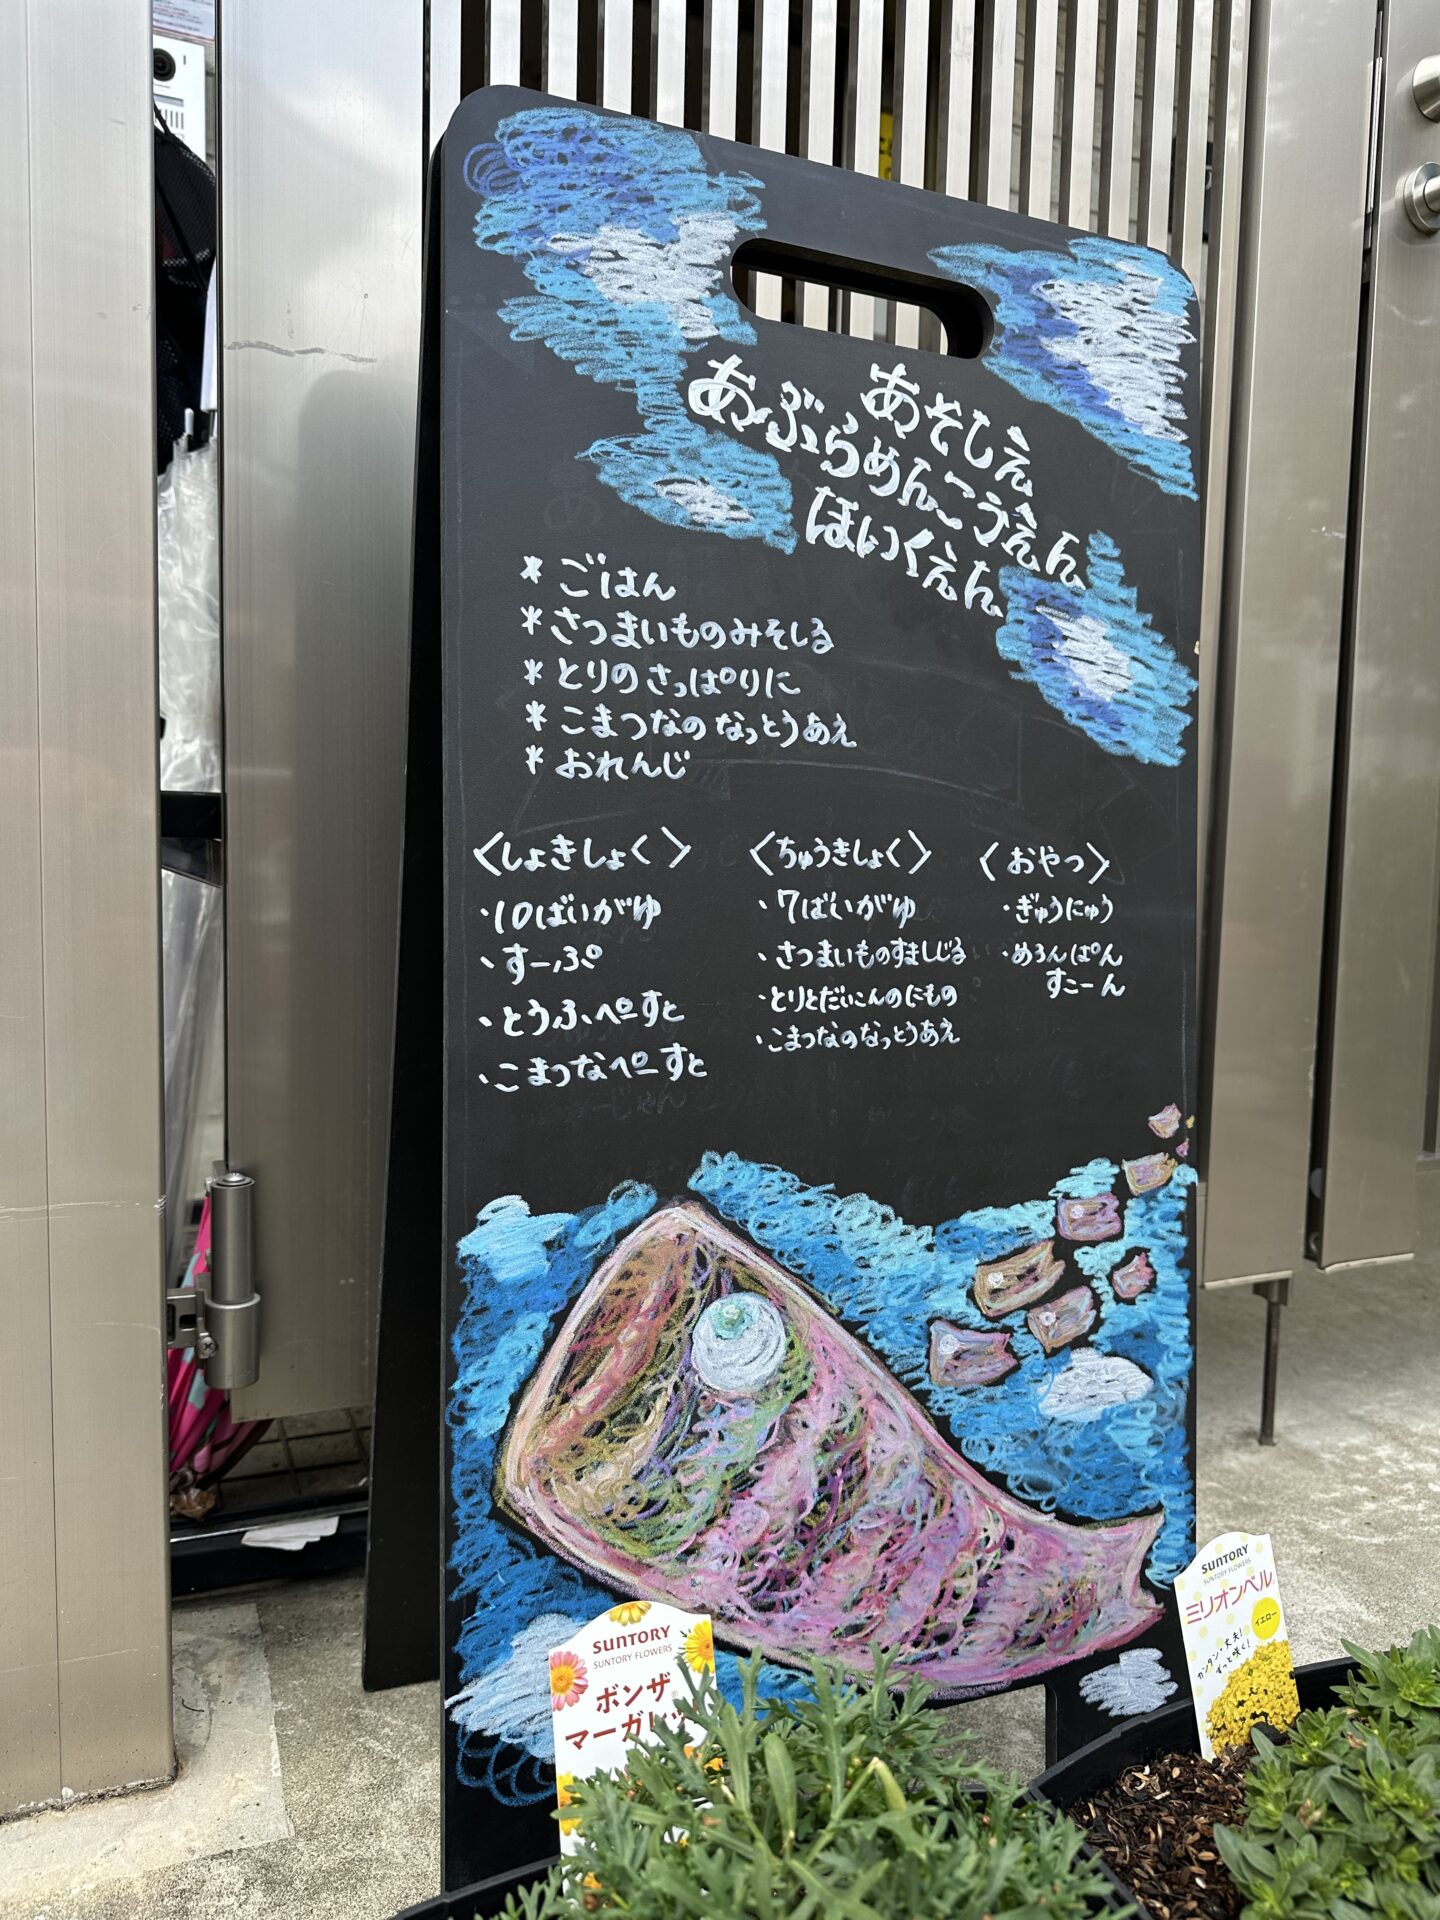 あそしえ
あぶらめんこうえん
ほいくえん
* ごはん
* さつまいものみそしる
* とりのさっぱりに
* こまつなのなっとうあえ
* おれんじ
〈しょきしょく〉
・10ばいがゆ
・すーぷ
・とうふぺーすと
・こまつなぺーすと
〈ちゅうきしょく〉
・7ばいがゆ
・さつまいものすましじる
・とりとだいこんのにもの
・こまつなのなっとうあえ
〈おやつ〉
・ぎゅうにゅう
・めろんぱん
すこーん
SUNTORY
SUNTORY FLOWERS
ボンザ
マーガレット
SUNTORY
SUNTORY FLOWERS
ミリオンベル
イエロー
カンタン、丈夫!
ずっと咲く!